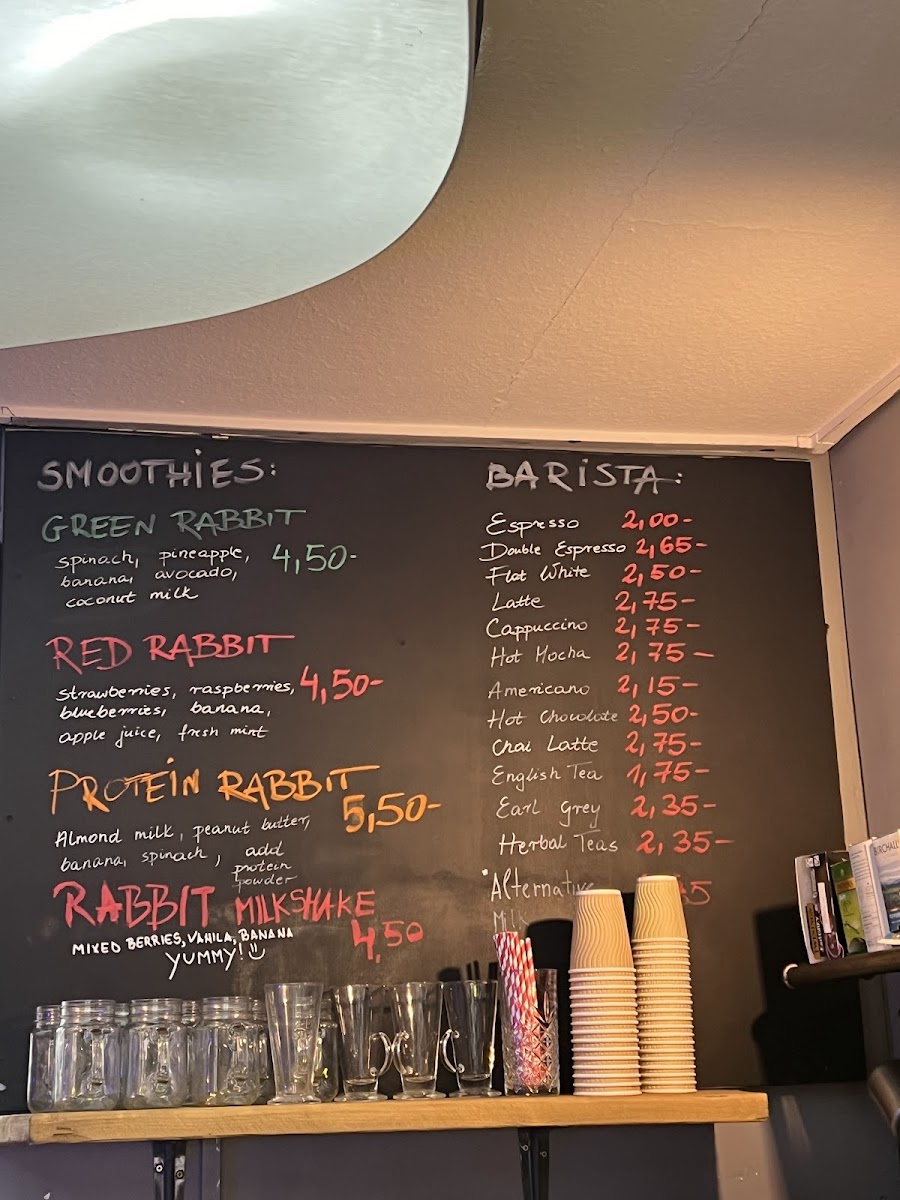 SMOOTHIES:
GREEN RABBIT
spinach, pineapple,
banana, avocado,
coconut milk
4,50-
RED RABBIT
strawberries, raspberries,
blueberries, banana,
apple juice, fresh mint
4,50-
PROTEIN RABBIT
Almond milk, peanut butter,
banana, spinach, add
protein
powder
5,50-
RABBIT MILKSHAKE
MIXED BERRIES, VANILA, BANANA
YUMMY!
4,50
BARISTA:
Espresso 2,00-
Double Espresso 2,65-
Flat White 2,50-
Latte 2,75-
Cappuccino 2,75-
Hot Mocha 2,75-
Americano 2,15-
Hot Chocolate 2,50-
Chai Latte 2,75-
English Tea 1,75-
Earl Grey 2,35-
Herbal Teas 2,35-
Alternative
Milk
BIRCHALL